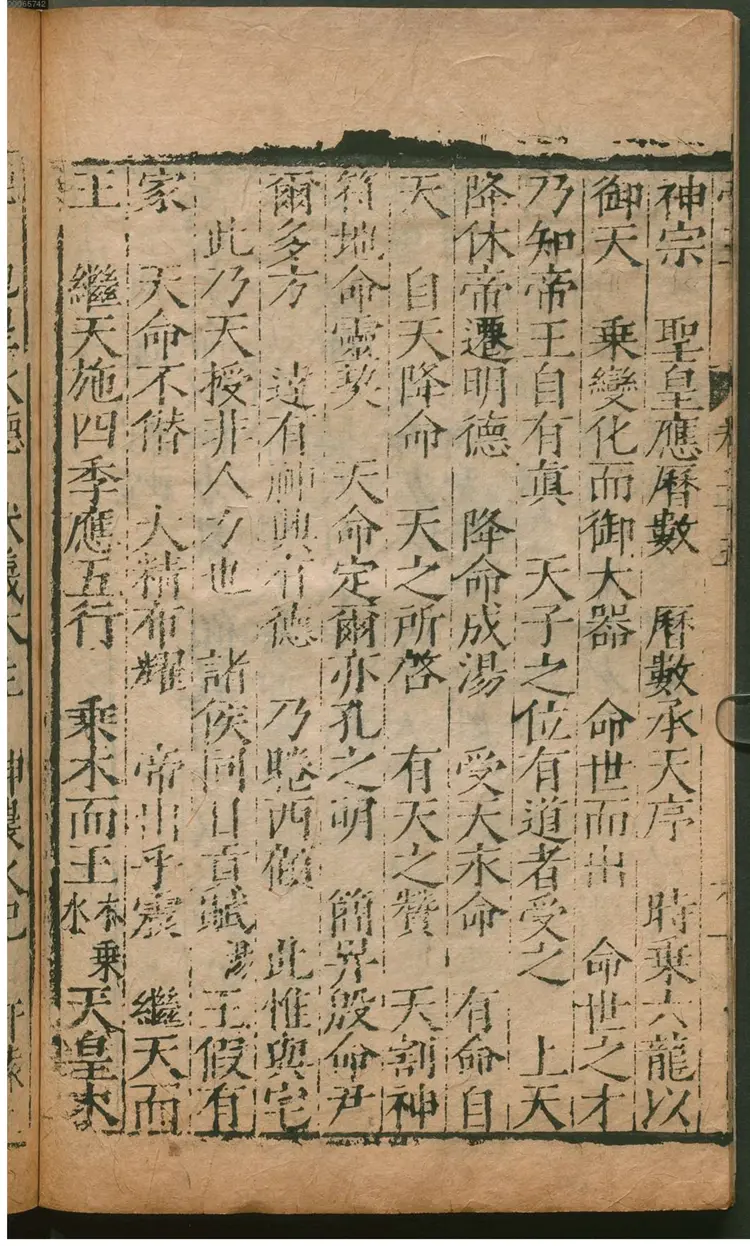 神宗　聖皇應曆數　曆數承天序　時乗六龍以
御天　乗變化而御大器　命世而出　命世之才
乃知帝王自有真　天子之位有道者受之　上天
降休帝遷明德　降命成湯　受天永命　有命自
天　自天降命　天之所啓　有天之贊　天割神
符地命靈契　天命定爾亦孔之明　簡畀殷命尹
爾多方　達有神興有德　乃睠西顧　此惟與宅
此乃天授非人力也　諸侯同日貢賦　王假有
家　天命不僣　大精布耀　帝出乎震　繼天而
王　繼天施四季應五行　乘木而王　木乗水　天皇木